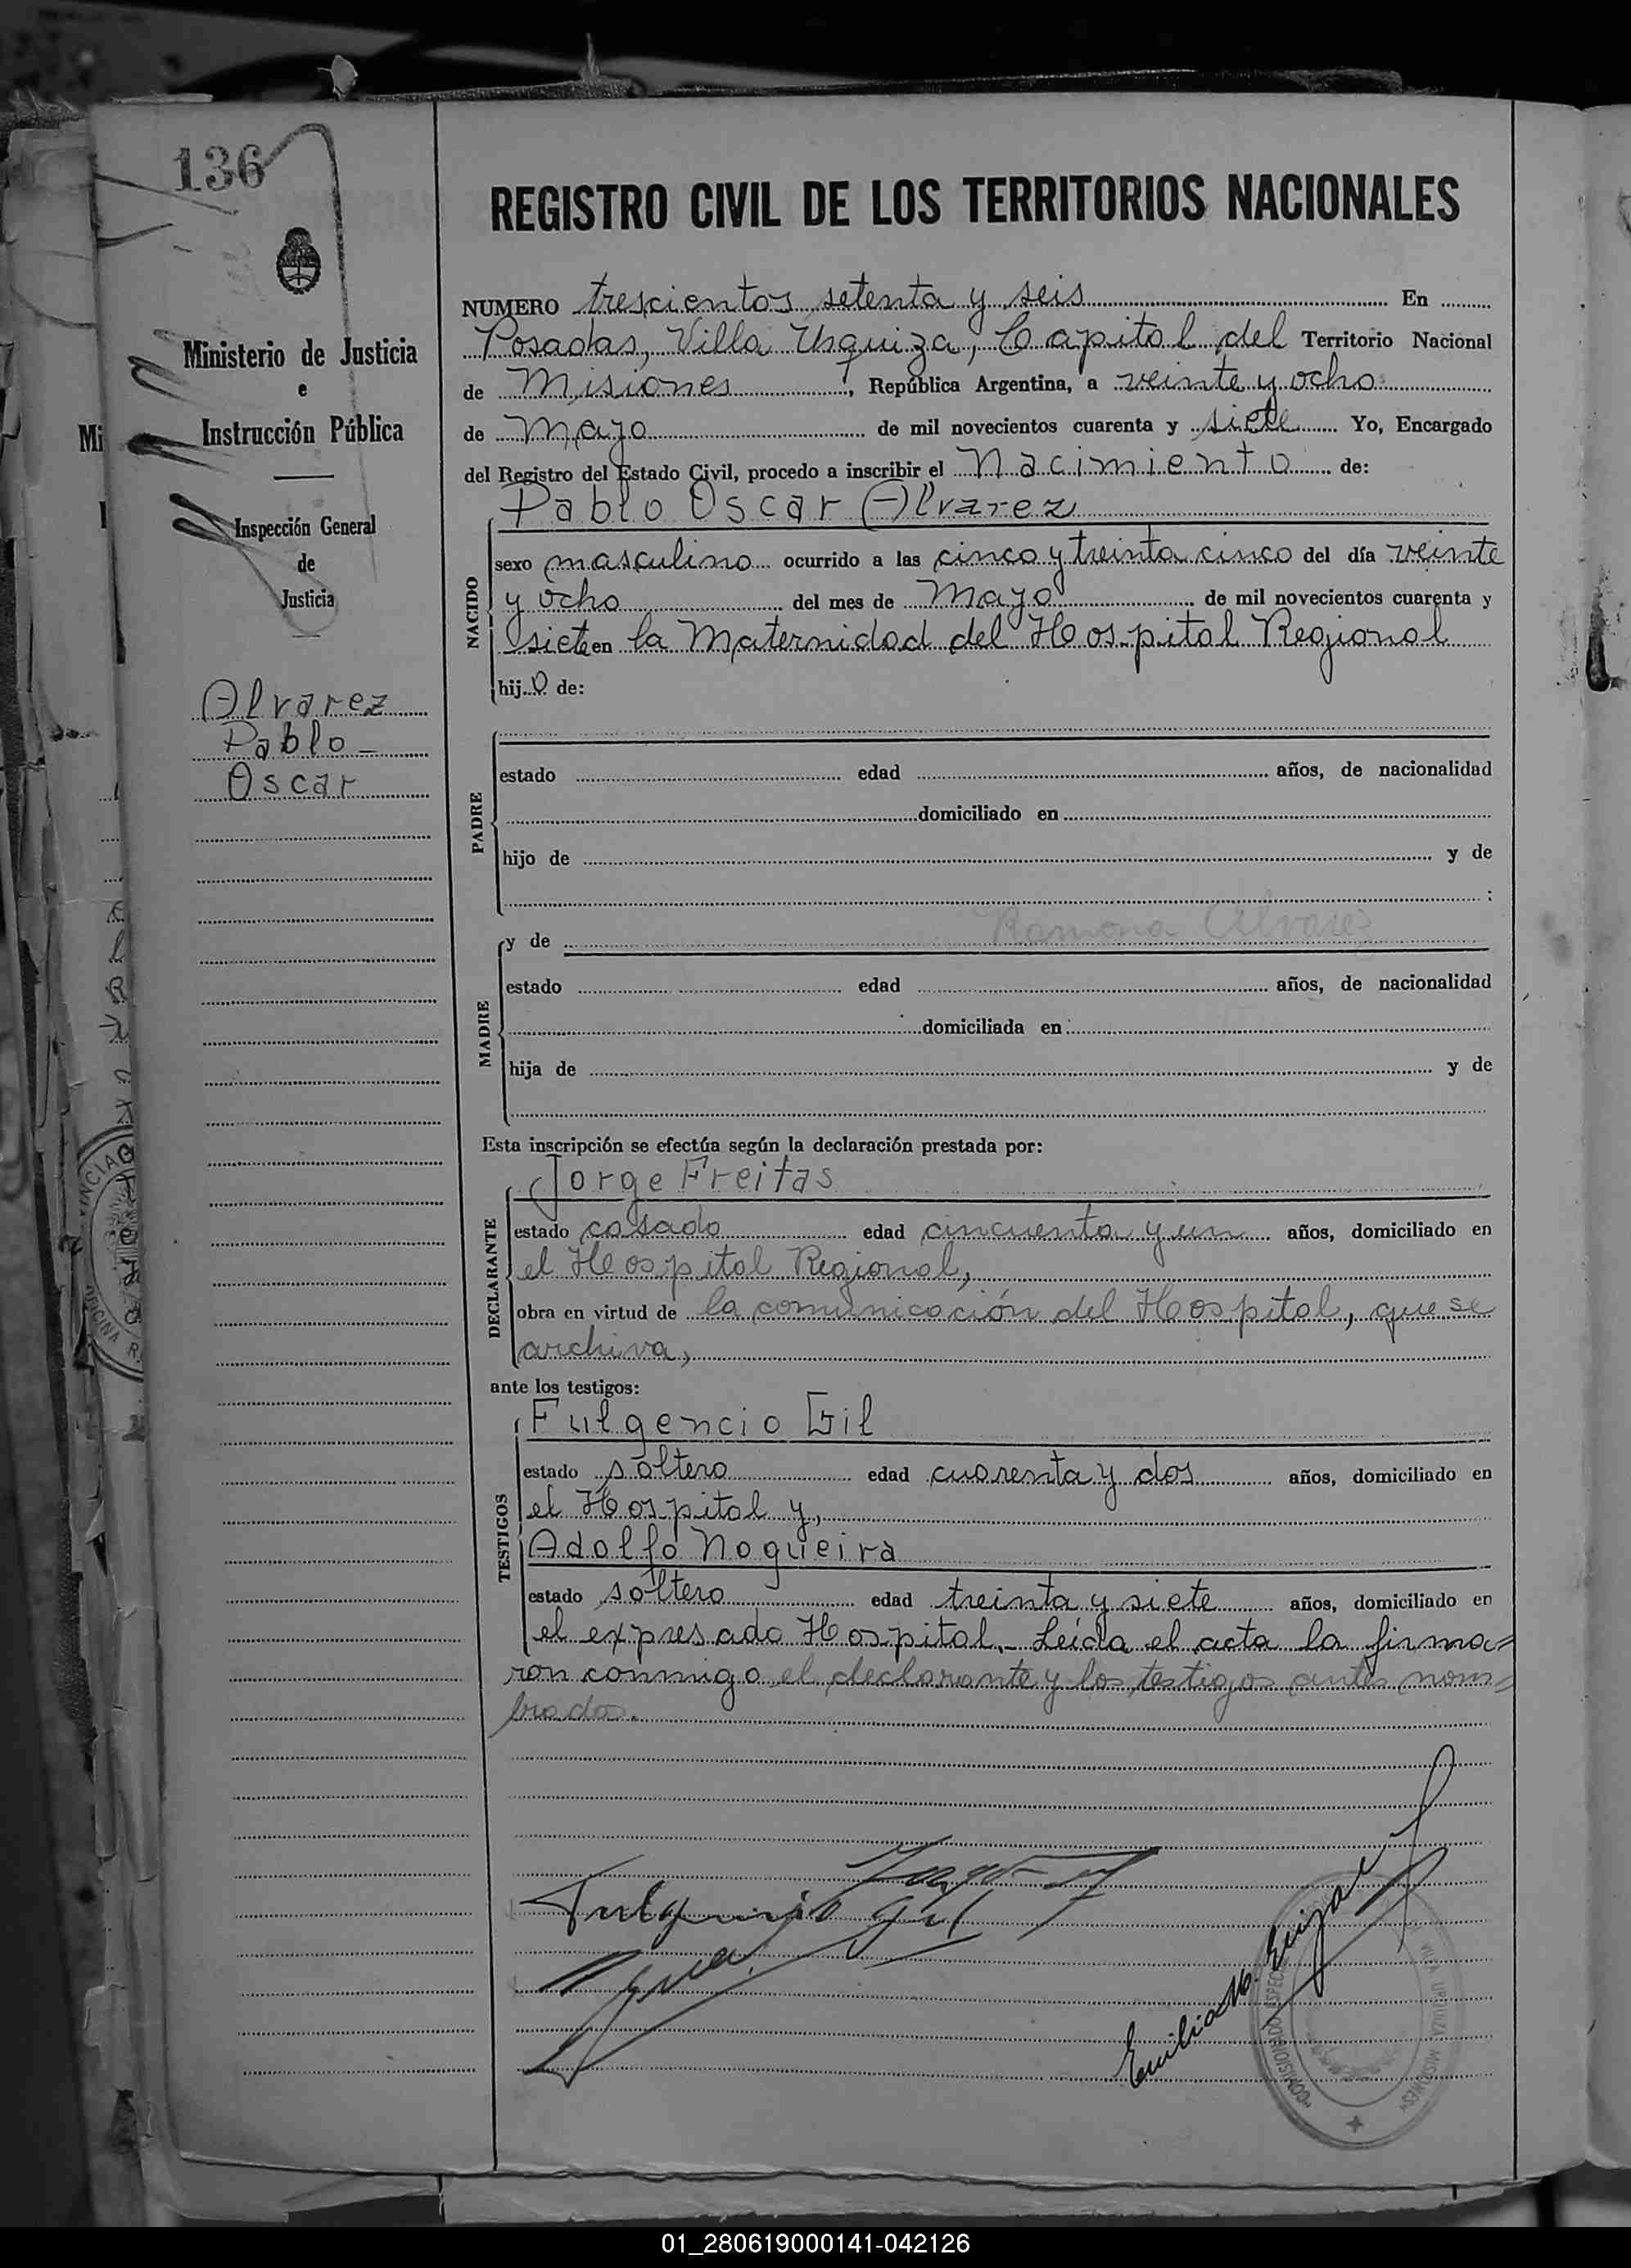 136
REGISTRO CIVIL DE LOS TERRITORIOS NACIONALES
Ministerio de Justicia
e
Instrucción Pública
Inspección General
de
Justicia
Alvarez
Pablo
Oscar
NUMERO trescientos setenta y seis En
Posadas, Villa Urquiza, Capital del Territorio Nacional
de Misiones, República Argentina, a veinte y ocho
de Mayo de mil novecientos cuarenta y siete Yo, Encargado
del Registro del Estado Civil, procedo a inscribir el Nacimiento de:
Pablo Oscar Alvarez
NACIDO
sexo masculino ocurrido a las cinco y treinta cinco del día veinte
y ocho del mes de Mayo de mil novecientos cuarenta y
siete en la Maternidad del Hospital Regional
hijo de:
PADRE
estado edad años, de nacionalidad
domiciliado en
hijo de y de
;
Ramona Alvares
MADRE
y de
estado edad años, de nacionalidad
domiciliada en
hija de y de
Esta inscripción se efectúa según la declaración prestada por:
Jorge Freitas
DECLARANTE
estado casado edad cincuenta y un años, domiciliado en
el Hospital Regional,
obra en virtud de la comunicación del Hospital, que se
archiva,
ante los testigos:
Fulgencio Gil
TESTIGOS
estado soltero edad cuarenta y dos años, domiciliado en
el Hospital y,
Adolfo Nogueira
estado soltero edad treinta y siete años, domiciliado en
el expresado Hospital.- Leída el acta la firma=
ron conmigo el declarante y los testigos antes nom=
brados.
Fulgencio Gil
COMISIONADO ESPECIAL
VILLA URQUIZA MISIONES
01_280619000141-042126